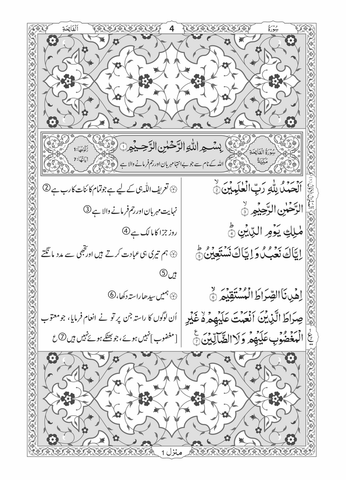 سُوْرَةُ 4 اَلْفَاتِحَة
بِسْمِ اللّٰهِ الرَّحْمٰنِ الرَّحِيْمِ
اللہ کے نام سے جو بے انتہا مہربان اور رحم فرمانے والا ہے
اَلْحَمْدُ لِلّٰهِ رَبِّ الْعٰلَمِيْنَ
تعریف اللہ ہی کے لیے ہے جو تمام کائنات کا رب ہے ②
الرَّحْمٰنِ الرَّحِيْمِ
نہایت مہربان اور رحم فرمانے والا ہے ③
مٰلِكِ يَوْمِ الدِّيْنِ
روز جزا کا مالک ہے ④
اِيَّاكَ نَعْبُدُ وَ اِيَّاكَ نَسْتَعِيْنُ
ہم تیری ہی عبادت کرتے ہیں اور تجھی سے مدد مانگتے
ہیں ⑤
اِهْدِنَا الصِّرَاطَ الْمُسْتَقِيْمَ
ہمیں سیدھا راستہ دکھا، ⑥
صِرَاطَ الَّذِيْنَ اَنْعَمْتَ عَلَيْهِمْ غَيْرِ
اُن لوگوں کا راستہ جن پر تو نے انعام فرمایا، جو معتوب
الْمَغْضُوْبِ عَلَيْهِمْ وَ لَا الضَّآلِّيْنَ
[مغضوب] نہیں ہوئے، جو بھٹکے ہوئے نہیں ہیں ⑦ ع
منزل ۱